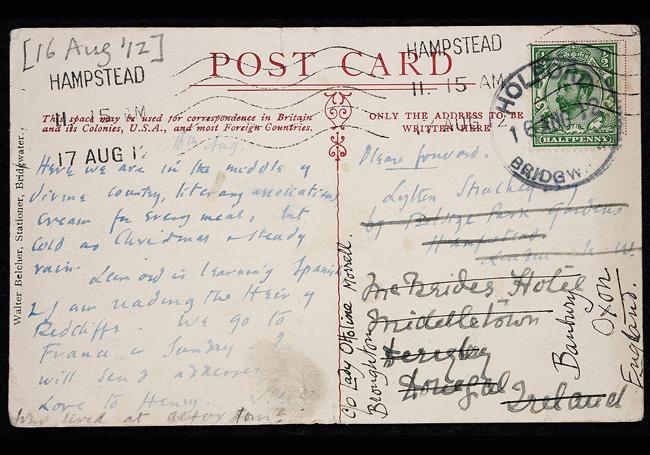 [16 Aug '12]
HAMPSTEAD
11. 15 AM
17 AUG 12
HAMPSTEAD
11. 15 AM
AUG 12
POST CARD
This space may be used for correspondence in Britain
and its Colonies, U.S.A., and most Foreign Countries.
ONLY THE ADDRESS TO BE
WRITTEN HERE
HOLFORD
16 AUG 12
BRIDGW
HALFPENNY
Walter Belcher, Stationer, Bridgwater.
16th Aug.
Here we are in the middle of
divine country, literary associations,
cream for every meal, but
cold as Christmas & steady
rain. Leonard is learning Spanish
& I am reading the Heir of
Redclyffe. We go to
France on Sunday &
will send addresses
Love to Henry.
who lived at
Please forward.
Lytton Strachey
Belsize Park Gardens
Hampstead
London N.W.
McBrides Hotel
Middletown
Derrybeg
Donegal
Ireland
c/o Lady Ottoline Morrell
Broughton
Banbury
Oxon
England.